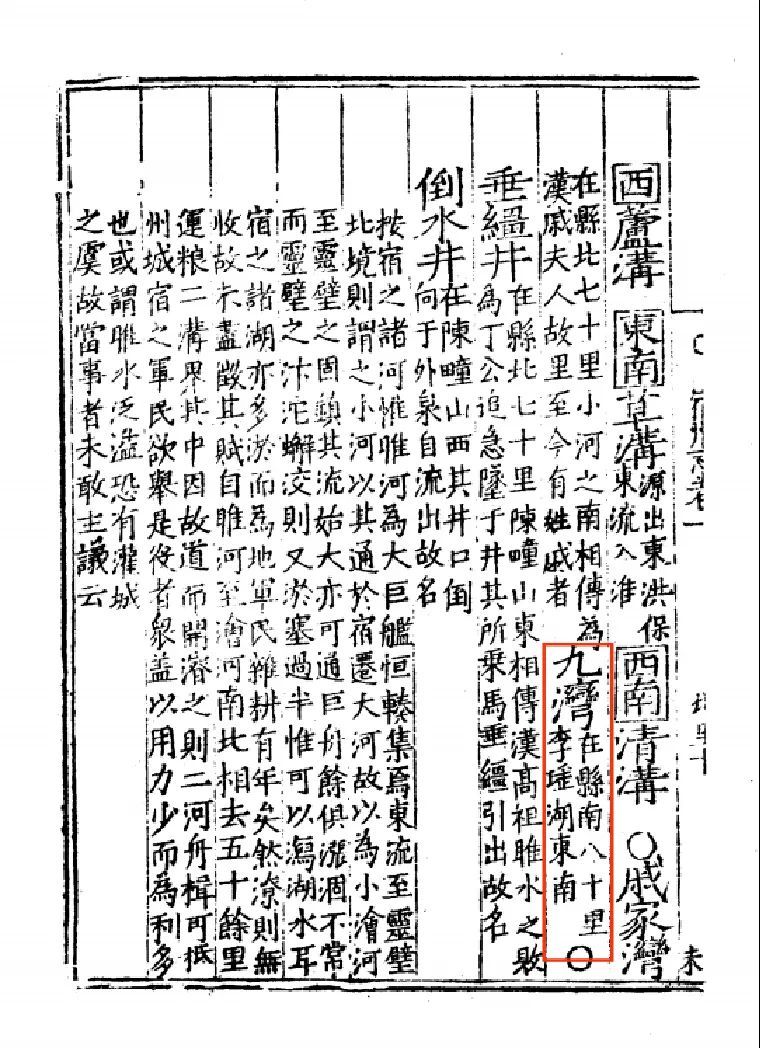 西蘆溝 東南草溝
源出東洪保
東流入淮
西南清溝 ○戚家灣
在縣北七十里小河之南相傳為
漢戚夫人故里至今有姓戚者
九灣
在縣南八十里
李瑶湖東南
○
垂繮井
在縣北七十里陳疃山東相傳漢高祖睢水之敗
為丁公追急墜于井其所乗馬垂繮引出故名
倒水井
在陳疃山西其井口倒
向于外泉自流出故名
按宿之諸河惟睢河為大巨艦恒輳集焉東流至靈壁
北境則謂之小河以其通於宿遷大河故以為小澮河
至靈壁之固鎮其流始大亦可通巨舟餘俱漲涸不常
而靈壁之汴沱澥洨則又淤塞過半惟可以瀉湖水耳
宿之諸湖亦多淤而為地軍民雜耕有年矣然潦則無
收故未盡徵其賦自睢河至澮河南北相去五十餘里
運粮二溝界其中因故道而開濬之則二河舟楫可抵
州城宿之軍民欲舉是役者衆盖以用力少而為利多
也或謂睢水泛溢恐有灌城
之虞故當事者未敢主議云